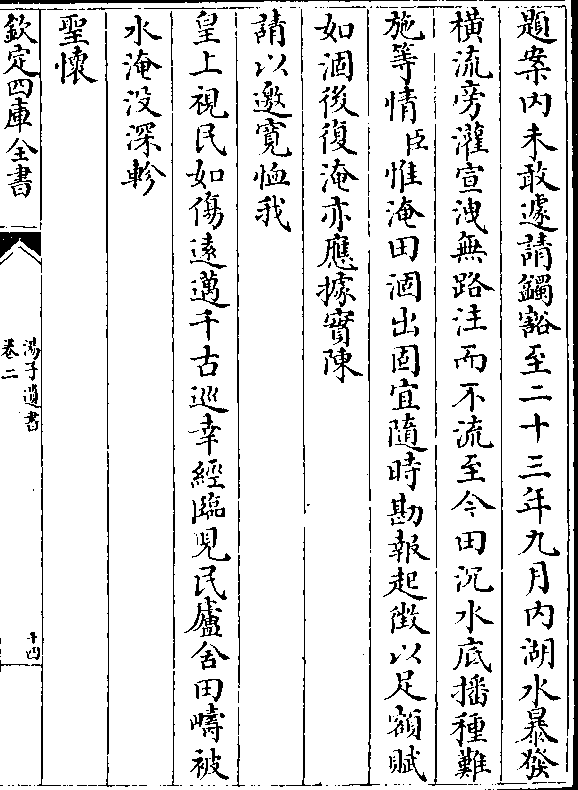 題案内未敢遽請蠲豁至二十三年九月内湖水暴發
橫流旁灌宣洩無路注而不流至今田沉水底播種難
施等情臣惟淹田涸出固宜隨時勘報起徴以足額賦
如涸後復淹亦應據實陳
請以邀寛恤我
皇上視民如傷逺邁千古巡幸經臨見民廬舍田疇被
水淹没深軫
聖懷
欽定四庫全書
湯子遺書
卷二
十四